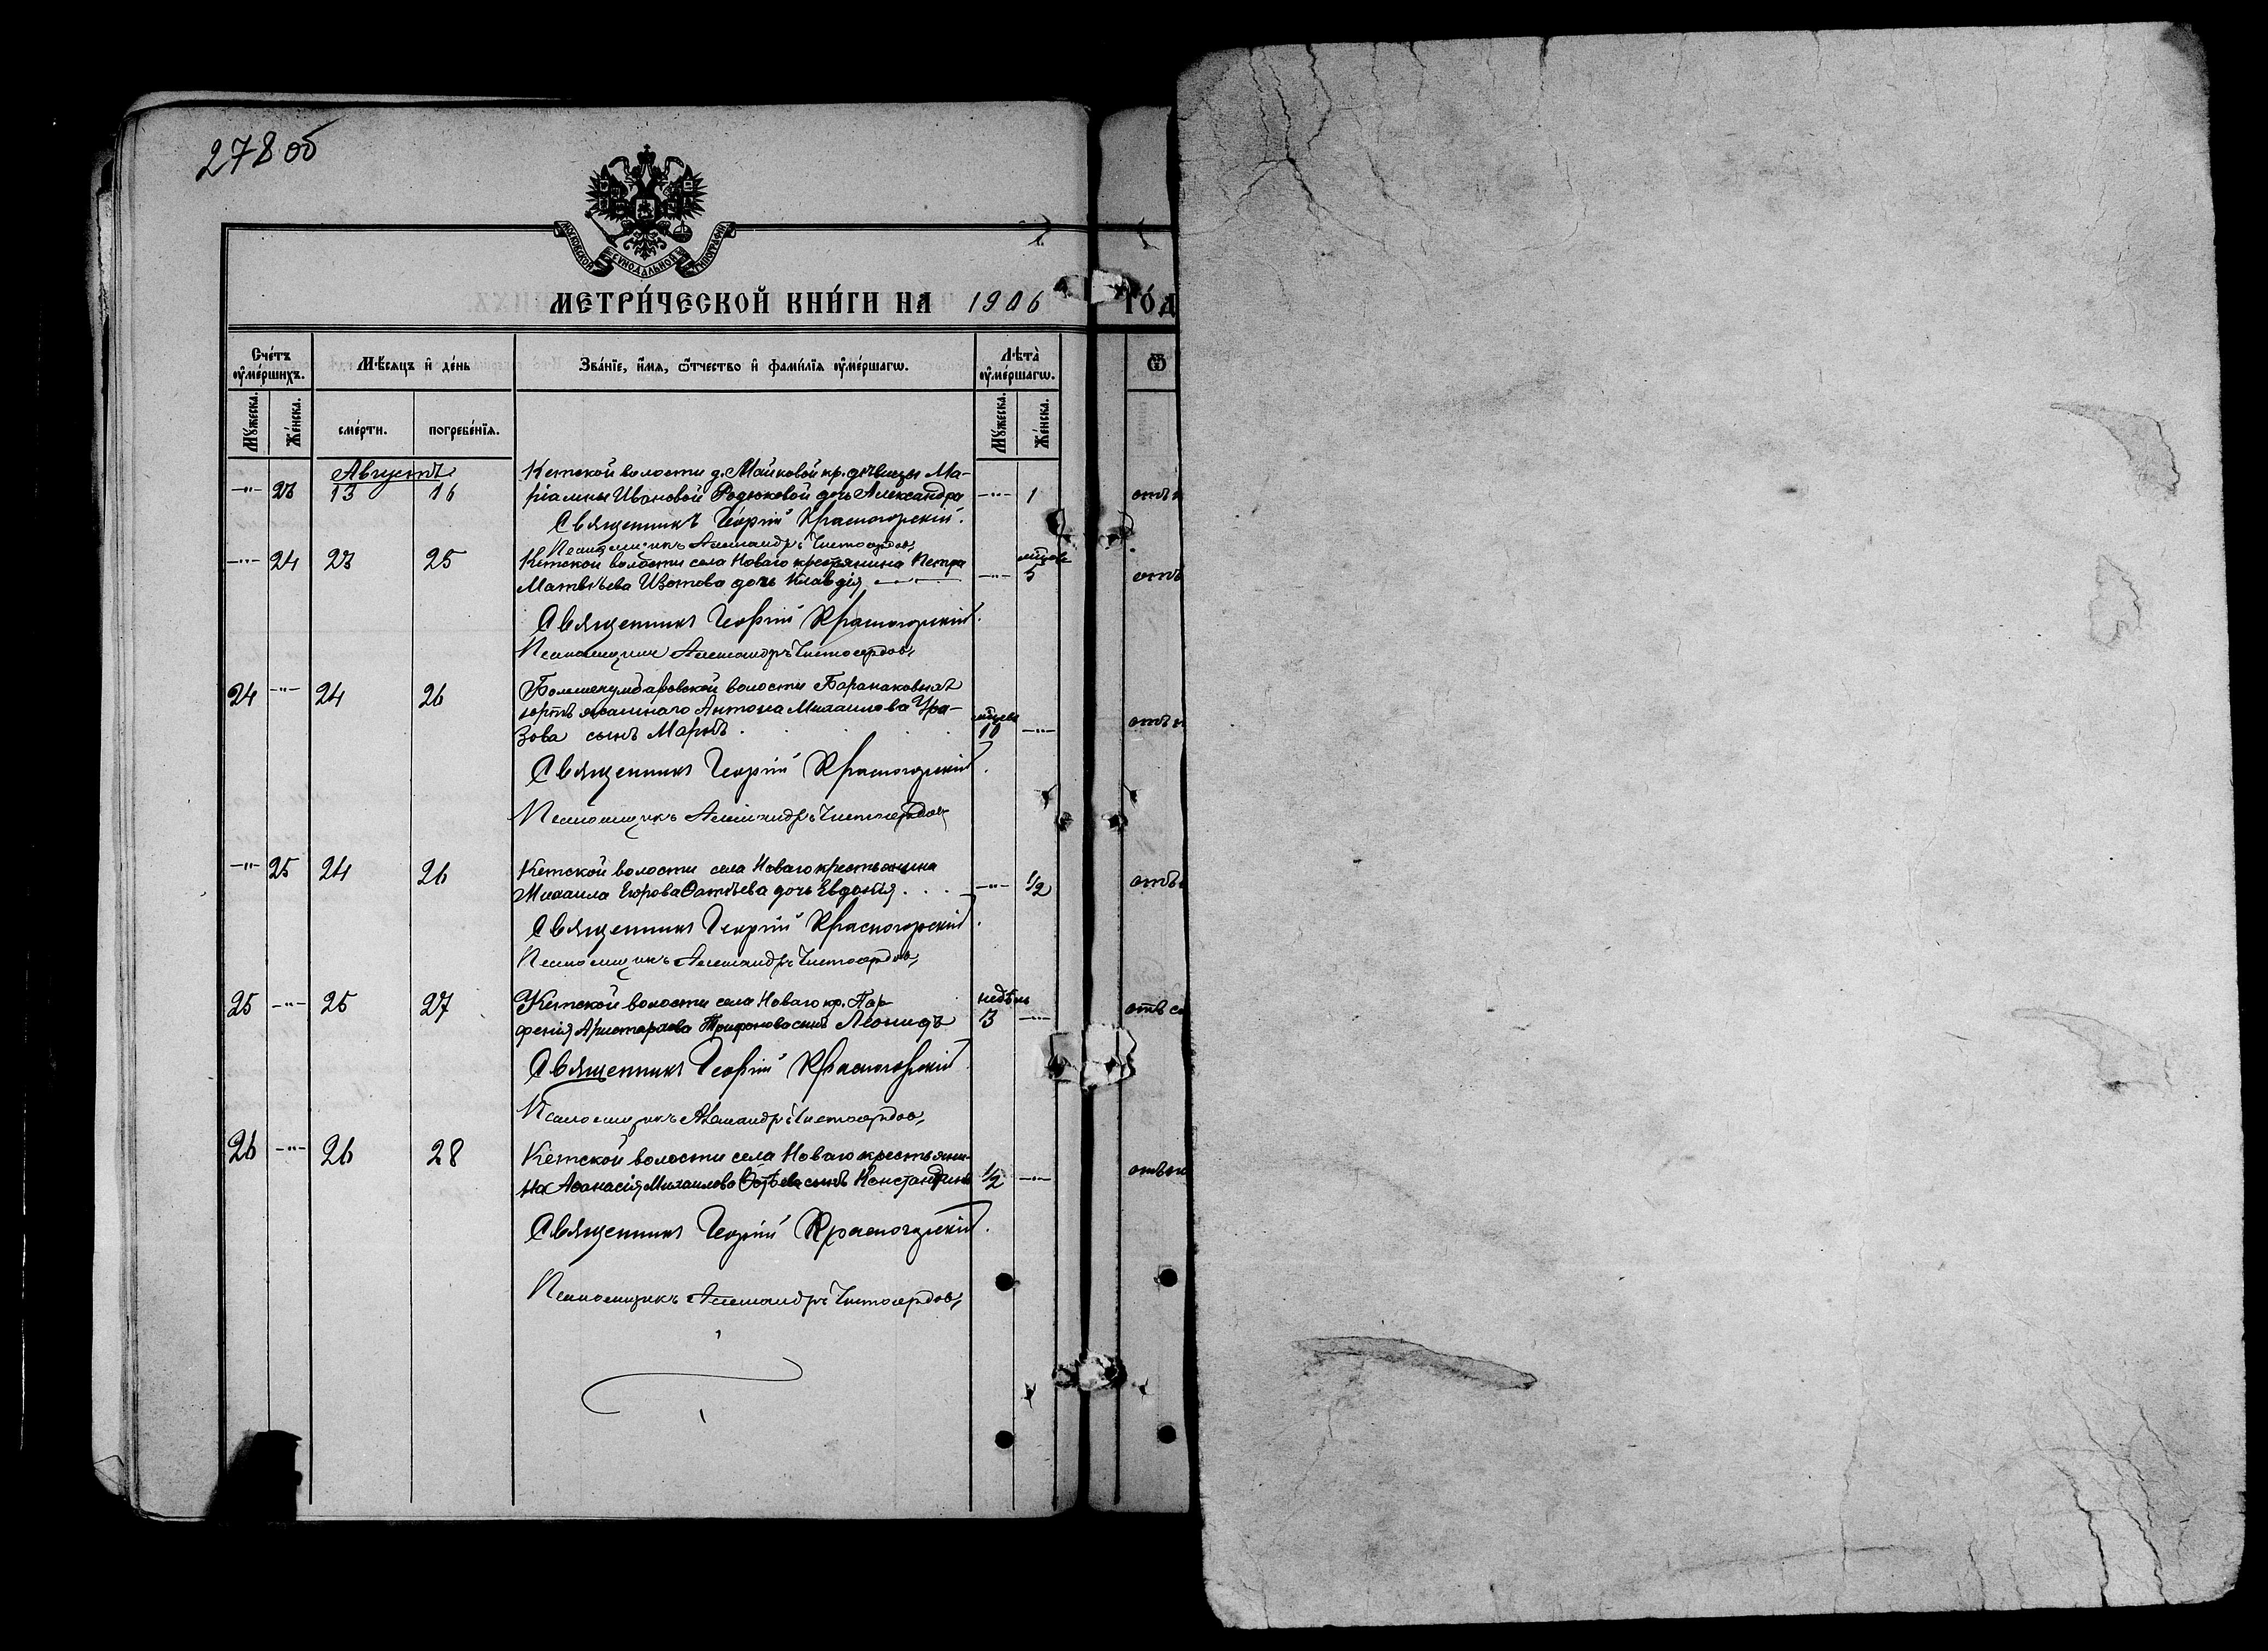 278 об
МОСКОВСКОЙ СѴНОДАЛЬНОЙ ТИПОГРАФІИ
МЕТРИ́ЧЕСКОЙ КНИ́ГИ НА 1906 ГО́Д
Сче́тъ оу҆ме́ршихъ. Мѣ́сяцъ и҆ де́нь Зва́нїе, и҆́мя, ѻ҆́тчество и҆ фами́лїя оу҆ме́ршагѡ. Лѣта̀ оу҆ме́ршагѡ. Ѿ
Мꙋ́жеска. Же́нска. сме́рти. погребе́нїя. Мꙋ́жеска. Же́нска.
Августъ Кетской волости д. Майковой кр. дѣвицы Ма-
-"- 23 13 16 ріамны Ивановой Родюковой дочь Александра -"- 1 отъ
Священникъ Георгій Красногорскій.
Псаломщикъ Александръ Чистосердовъ
-"- 24 23 25 Кетской волости села Новаго крестьянина Петра
Матвѣева Изотова дочь Клавдія -"- 5 отъ
Священникъ Георгій Красногорскій.
Псаломщикъ Александръ Чистосердовъ
24 -"- 24 26 волости
юртъ Антона Михаилова Ура-
зова сынъ 10 -"- отъ
Священникъ Георгій Красногорскій.
Псаломщикъ Александръ Чистосердовъ
-"- 25 24 26 Кетской волости села Новаго крестьянина
Михаила Егорова Фатѣева дочь Евдокія -"- 1/2 отъ
Священникъ Георгій Красногорскій.
Псаломщикъ Александръ Чистосердовъ
25 -"- 25 27 Кетской волости села Новаго кр. Пар- недѣль
фенія Аристархова Трифонова сынъ Леонидъ 3 -"- отъ
Священникъ Георгій Красногорскій
Псаломщикъ Александръ Чистосердовъ
26 -"- 26 28 Кетской волости села Новаго крестьяни-
на Аѳанасія Михаилова сынъ Константинъ 1/2 -"- отъ
Священникъ Георгій Красногорскій.
Псаломщикъ Александръ Чистосердовъ